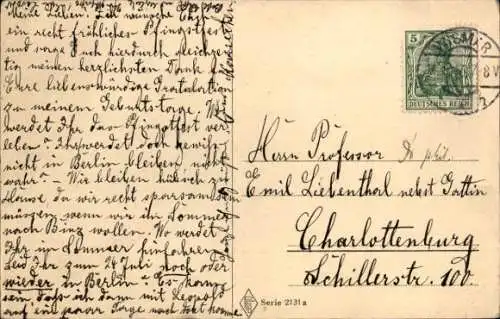 Meine Lieben! Ich wünsche Euch
ein recht fröhliches Pfingstfest
und sage Euch hierdurch gleichzei-
tig meinen herzlichsten Dank für
Eure liebenswürdige Gratulation
zu meinem Geburtstage. Wo
werdet Ihr das Pfingstfest ver-
leben? Ihr werdet doch gewiss
nicht in Berlin bleiben nicht
wahr? – Wir bleiben hübsch zu
Hause da wir recht sparsam sein
müssen, wenn wir im Sommer
nach Binz wollen. Wo werdet
Ihr im Sommer hinfahren
Seid Ihr zum 24 Juli noch oder
wieder in Berlin? Es kann
sein dass ich dann mit Leopold
auf ein paar Tage nach dort komme
5
DEUTSCHES REICH
WISMAR
Herrn Professor Dr. phil.
Emil Liebenthal nebst Gattin
Charlottenburg
Schillerstr. 100.
Serie 2131 a